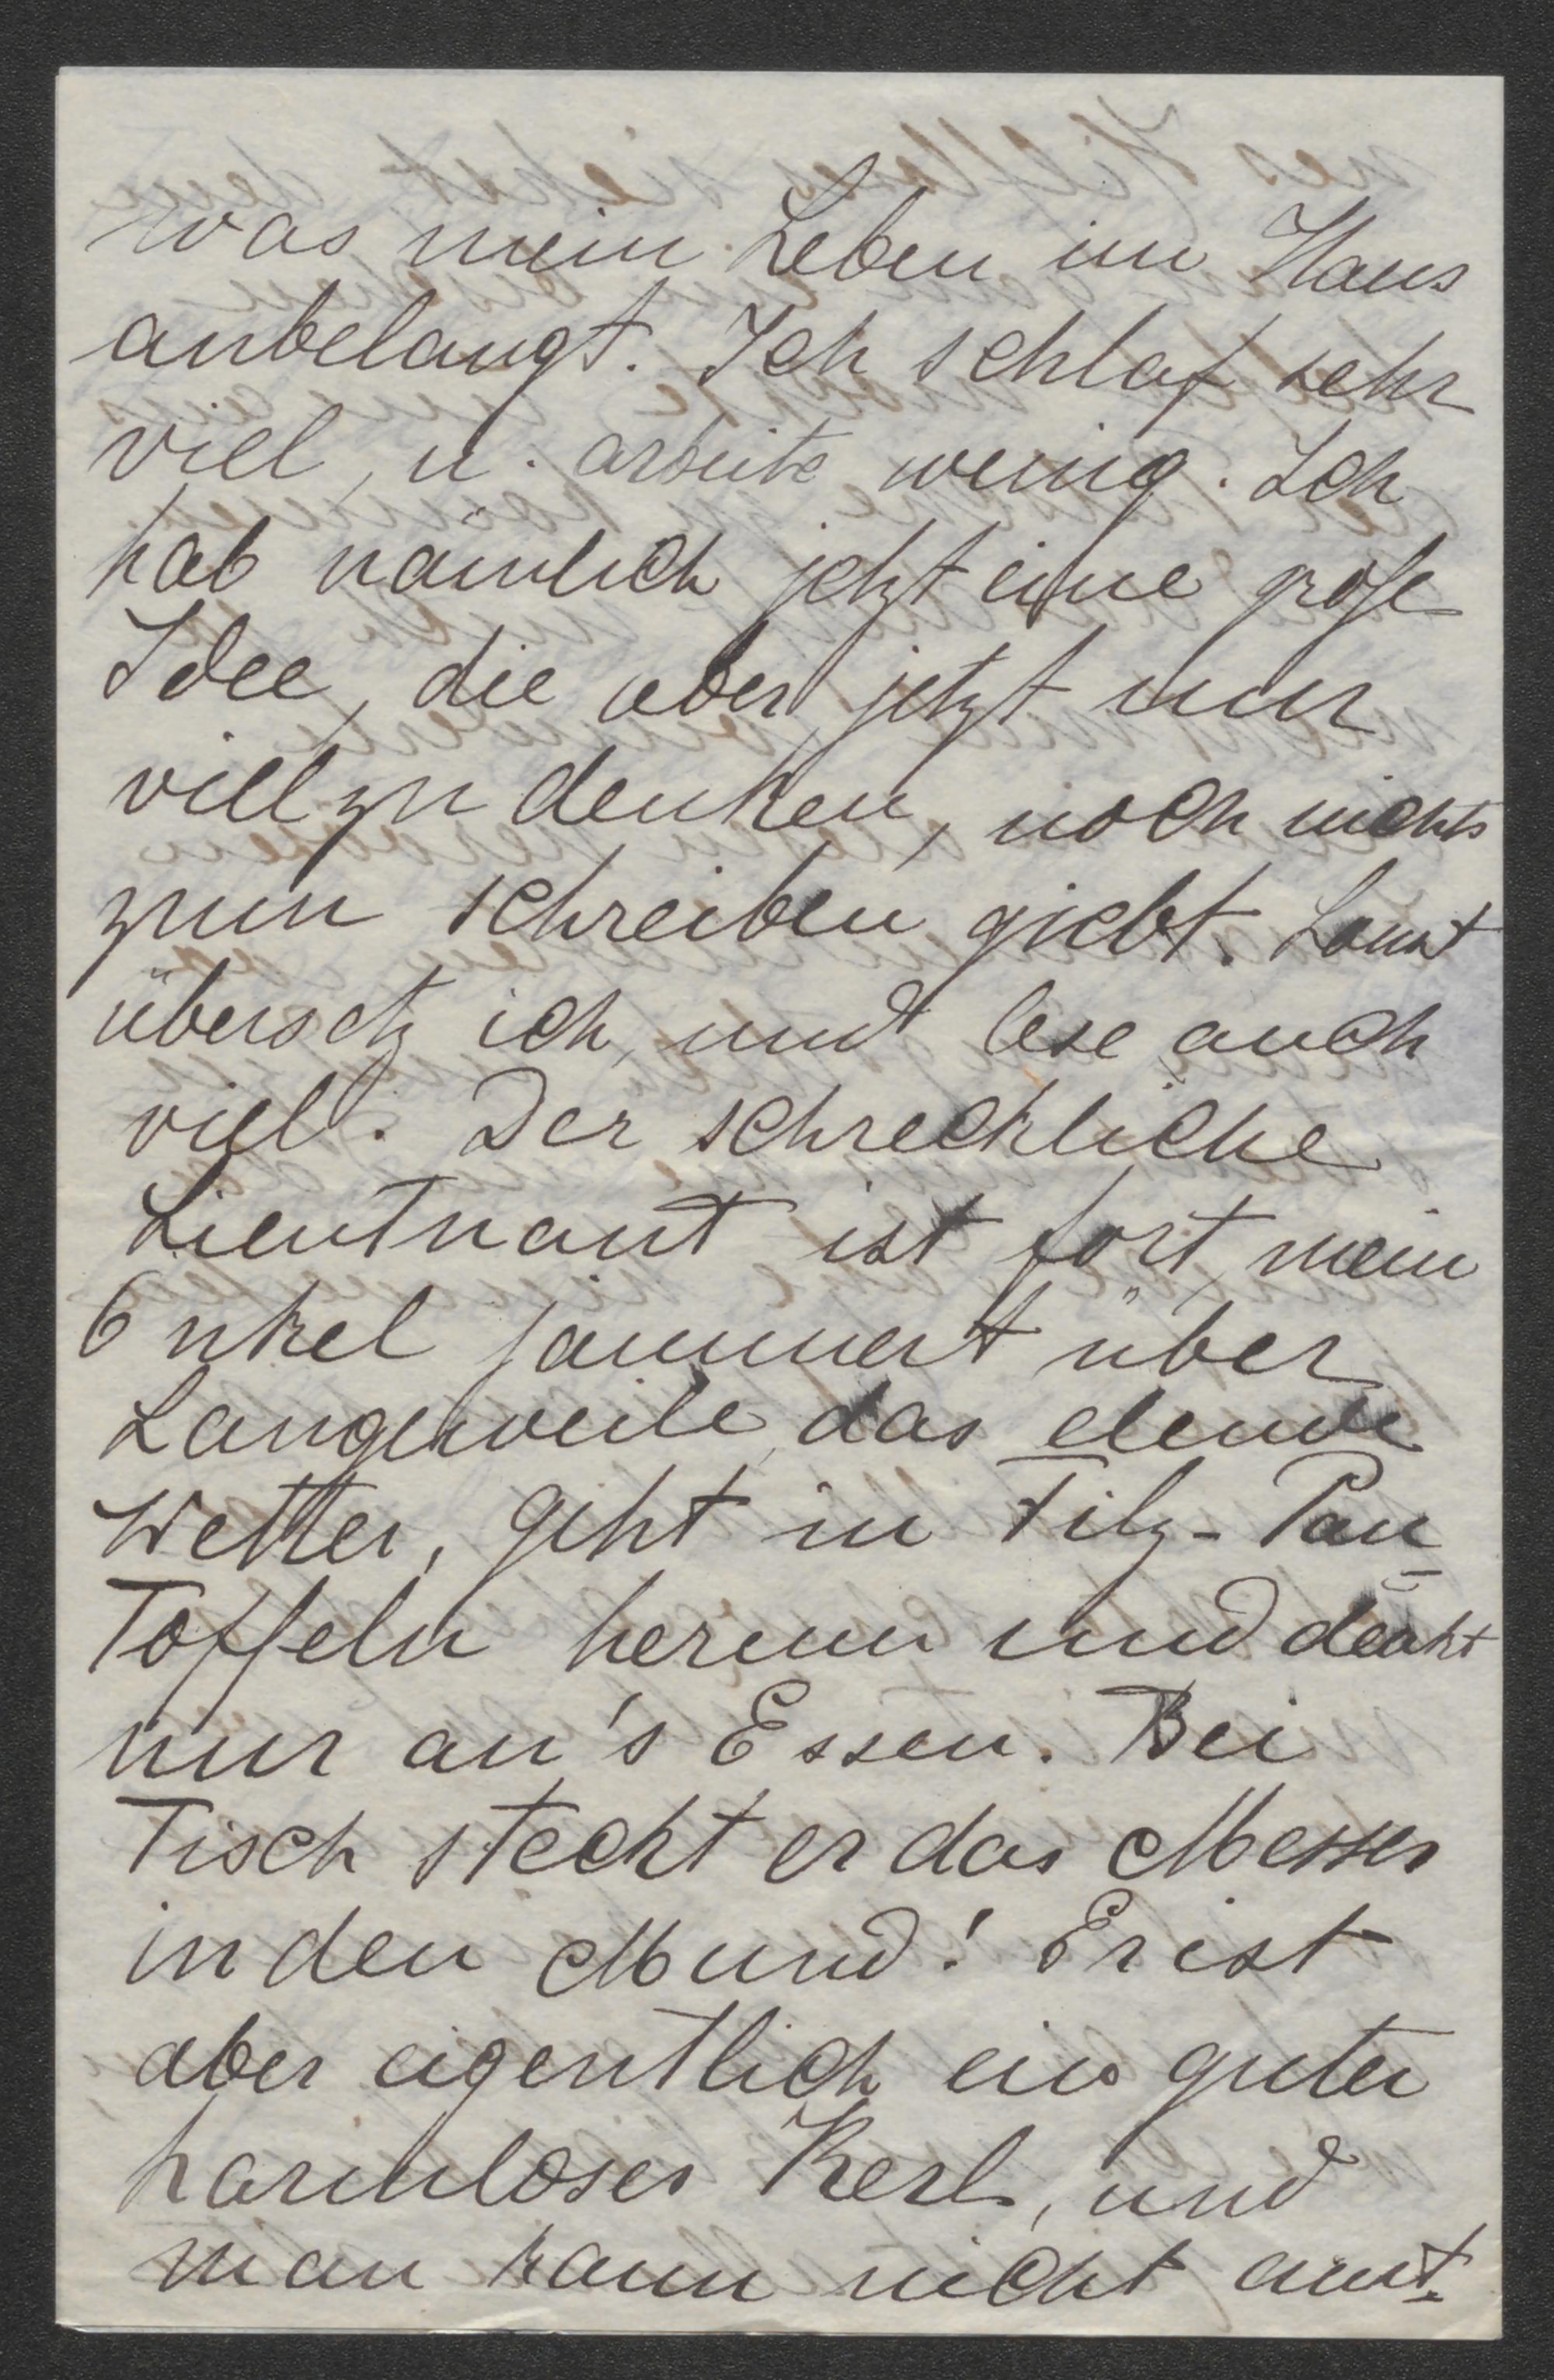 was mein Leben im Haus
anbelangt. Ich schlaf sehr
viel, u. arbeite wenig. Ich
hab nämlich jetzt eine große
Idee, die aber jetzt nur
viel zu denken, noch nichts
zum schreiben giebt. Sonst
übersetz ich, und lese auch
viel. Der schreckliche
Lieutnant ist fort, mein
Onkel jammert über
Langeweile, das elende
Wetter, geht in Filz-Pan-
toffeln herum und denkt
nur an's Essen. Bei
Tisch steckt er das Messer
in den Mund! Er ist
aber eigentlich ein guter
harmloser Kerl, und
man kann nicht